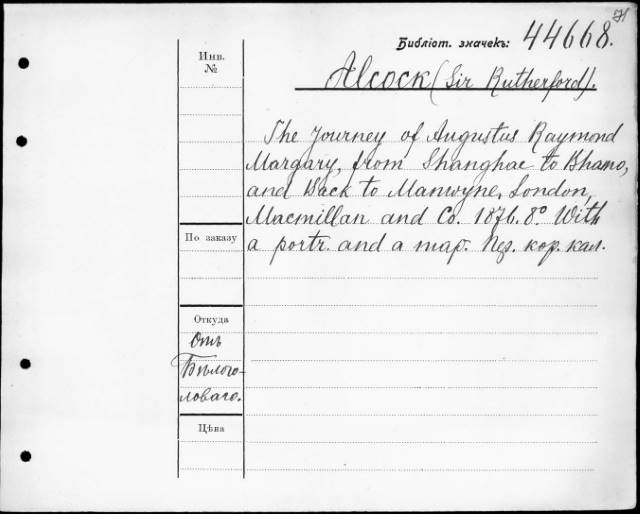 Библіот. значекъ: 44668.
Инв.
№
Alcock (Sir Rutherford).
The Journey of Augustus Raymond
Margary, from Shanghae to Bhamo,
and Back to Manwyne, London,
Macmillan and Co. 1876. 8° With
a portr. and a map. Пер. кор. кал.
По заказу
Откуда
Отъ
Бѣлого-
ловаго.
Цѣна